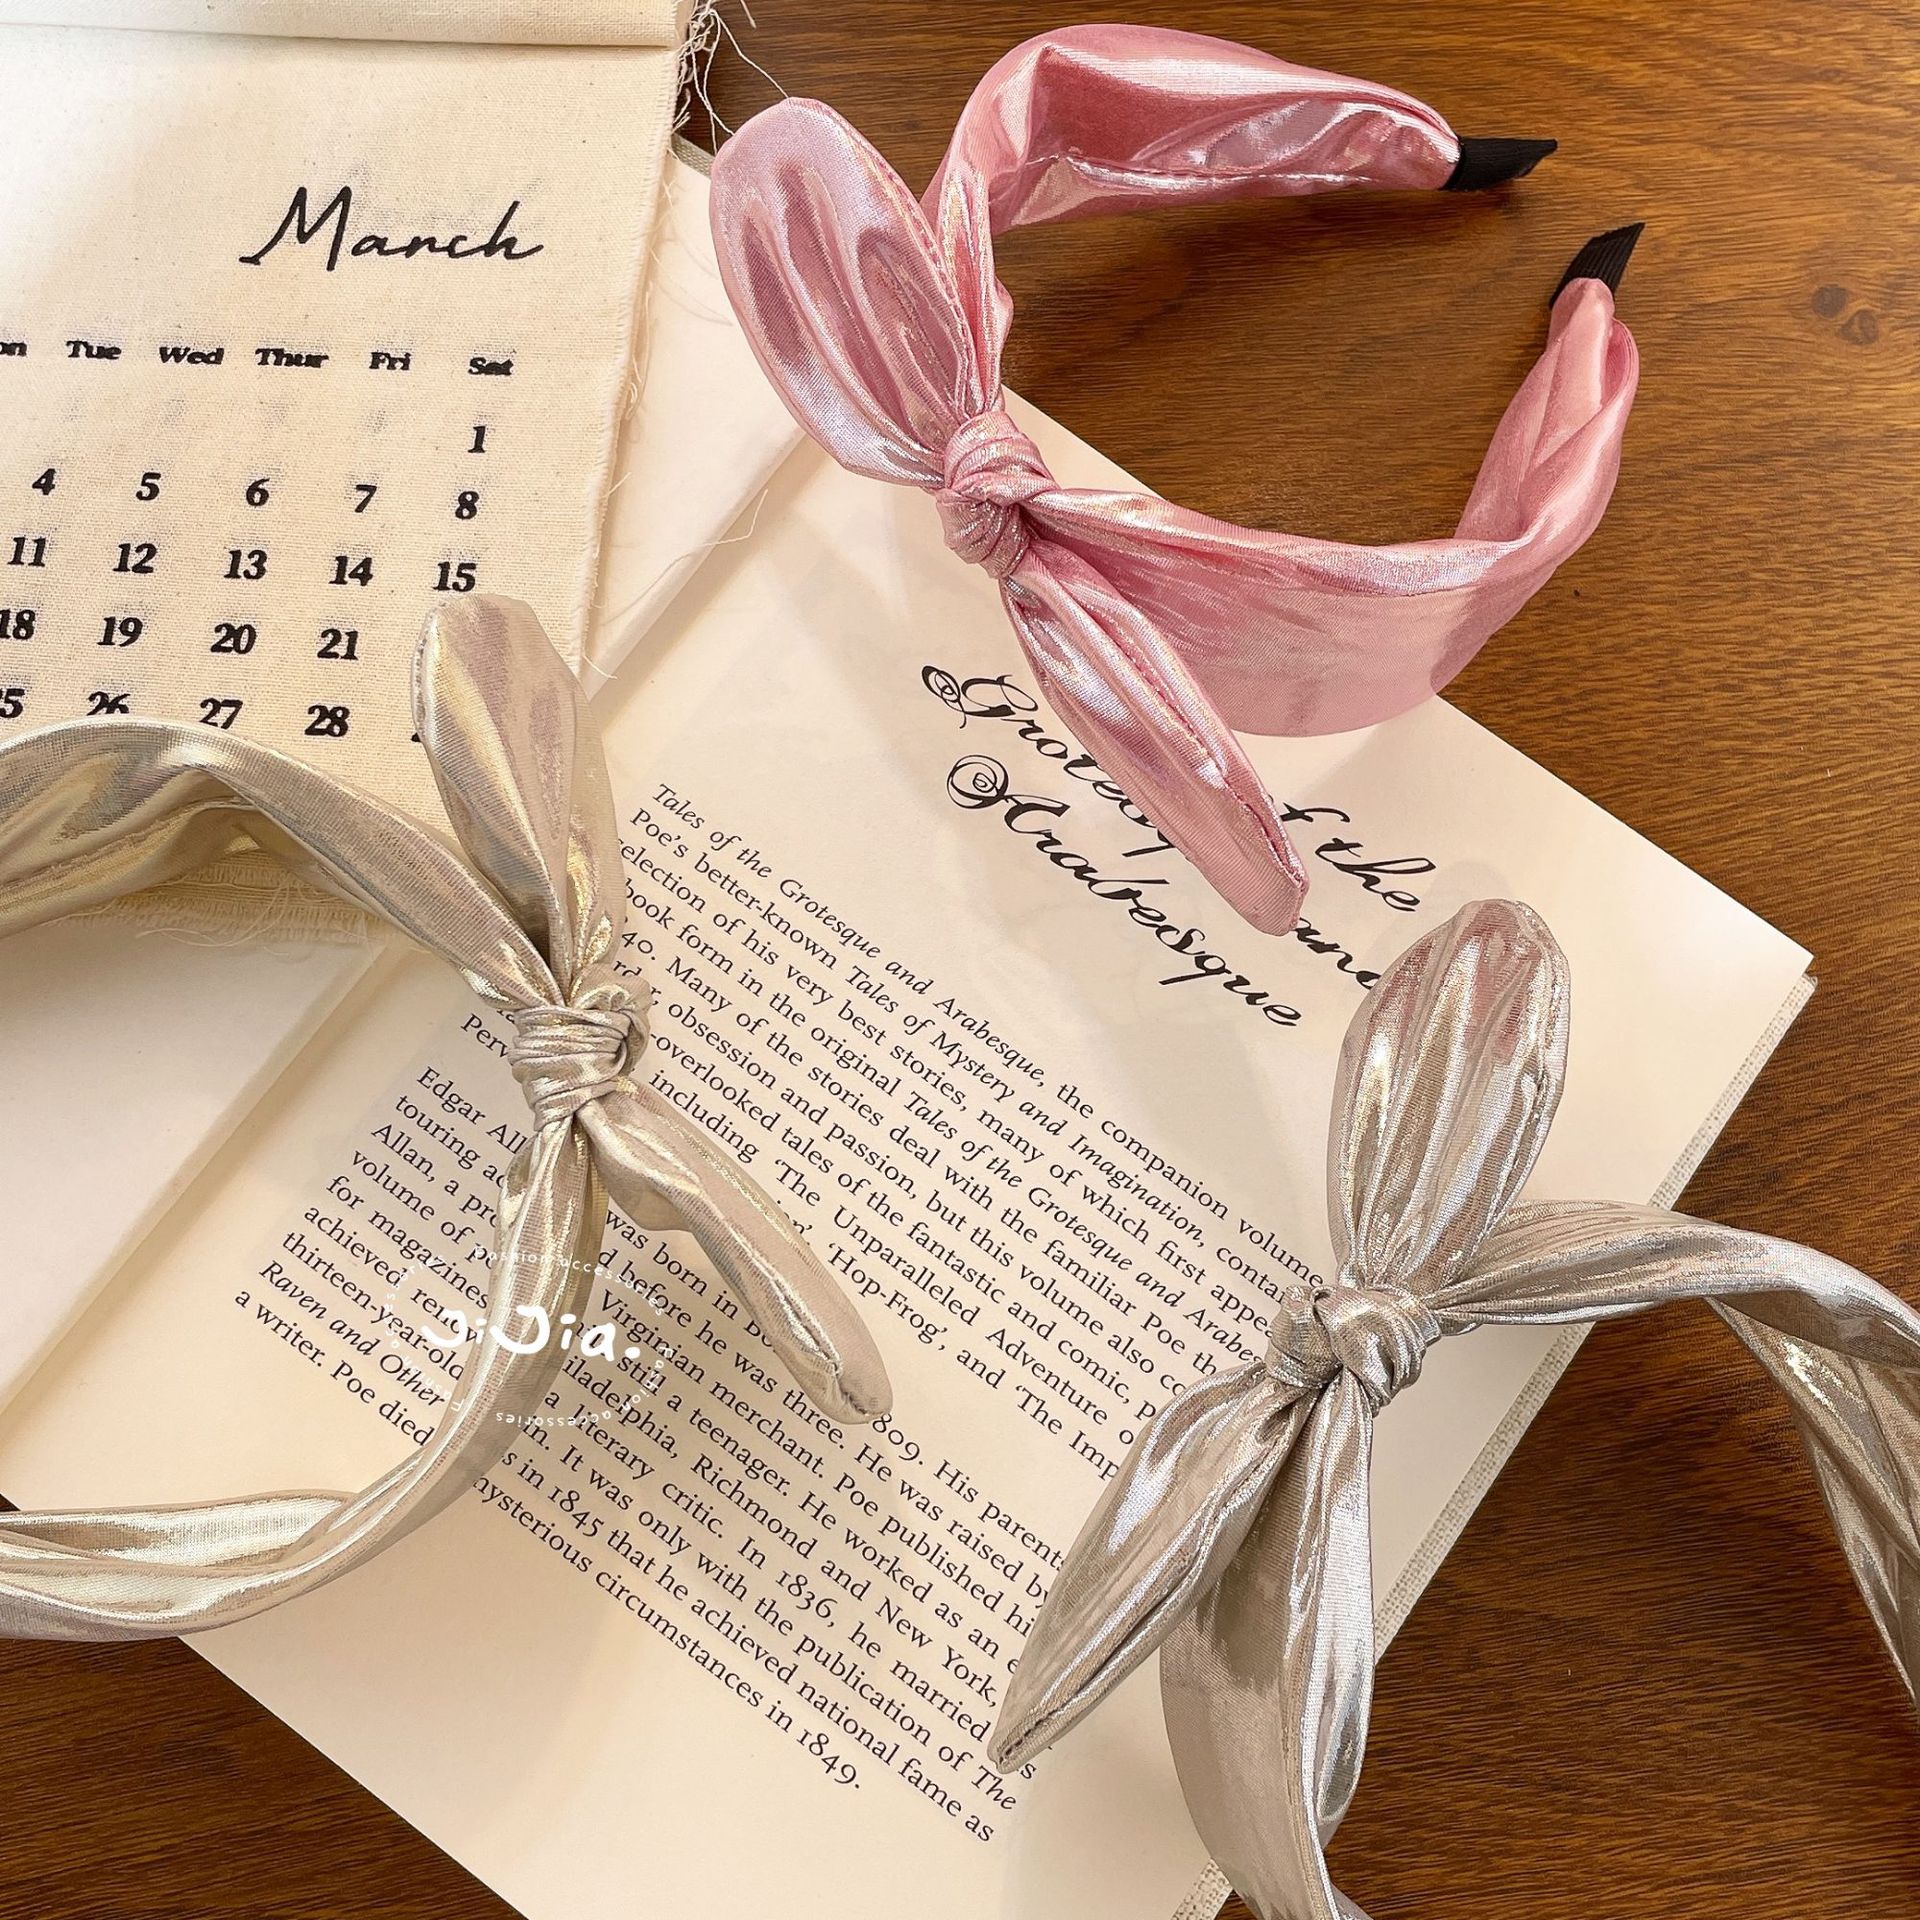 March
Tue Wed Thur Fri Sat
1
4 5 6 7 8
11 12 13 14 15
18 19 20 21
26 27 28
the
Arabesque
Tales of the Grotesque and Arabesque, the companion volume
Poe's better-known Tales of Mystery and Imagination, contai
selection of his very best stories, many of which first appea
book form in the original Tales of the Grotesque and Arabes
40. Many of the stories deal with the familiar Poe th
obsession and passion, but this volume also co
-overlooked tales of the fantastic and comic, p
including 'The Unparalleled Adventure o
'Hop-Frog', and 'The Imp
Perv
Edgar All was born in Bo 809. His parents
touring ac d before he was three. He was raised by
Allan, a pro Virginian merchant. Poe published hi
volume of po still a teenager. He worked as an e
for magazines iladelphia, Richmond and New York,
achieved renow a literary critic. In 1836, he married
thirteen-year-old in. It was only with the publication of The
Raven and Other s in 1845 that he achieved national fame as
a writer. Poe died mysterious circumstances in 1849.
JiJia.
accessories